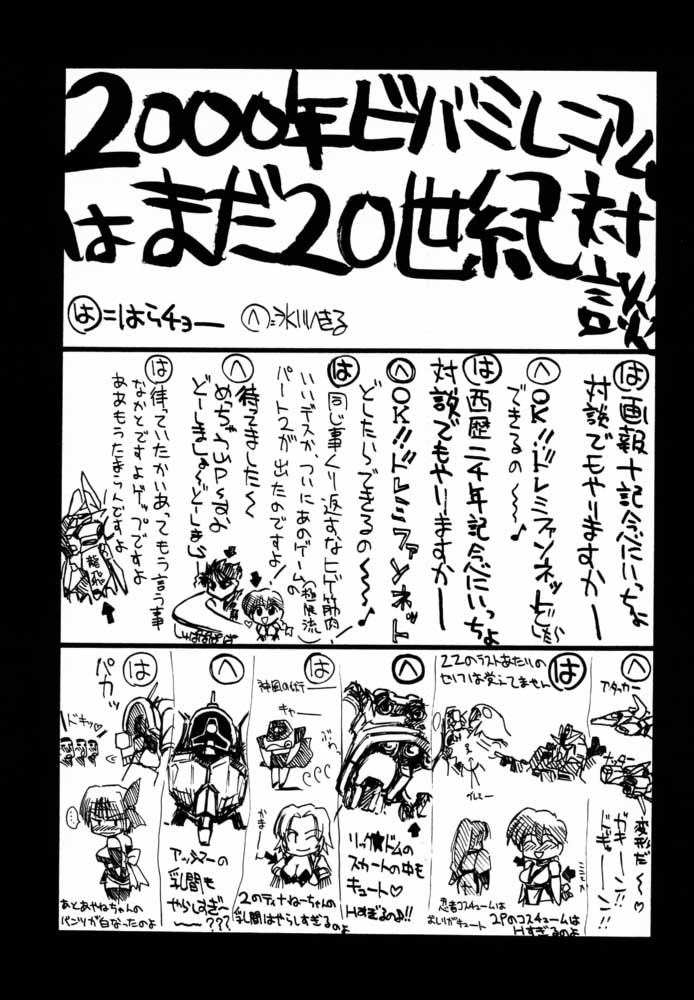 2000年ビバミレニアム
はまだ20世紀対談
は=はらチョー
へ=氷川へきる
は 画報十記念にいっちょ
対談でもやりますかー
へ OK!!ドレミファンネットどしたら
できるの〜〜〜♪
は 西歴二千年記念にいっちょ
対談でもやりますかー
へ OK!!ドレミファンネット
どしたらできるの〜〜〜♪
は 同じ事くり返すなヒゲ筋肉
(極限流)
いいデスか、ついにあのゲームの
パート2が出たのですよ!
へ 待ってました〜
めっちゃUPっすよ
どーしましょ〜どーしましょ
しゅばばばば
は 待っていたかいあってもう言う事
なかとですよゲップですよ
ああもうたまらんですよ
龍飛
へ
アタッカー
ナッター
変形だ〜♡
ガキーン!!
ドギューン!!
は
ZZのラストあたりの
セリフは覚えてません
2Pのコスチュームは
Hすぎるのよ
忍者コスチュームは
おしりがキュート
へ
リック★ドムの
スカートの中も
キュート♡
Hすぎるのよ!!
は
神風の術ー
キャー
ぶわっ
かまーん
2のティナねーちゃんの
乳間はやらしすぎる
のよ
へ
アッシマーの
乳間も
やらしすぎ〜
〜〜???
は
パカッ
ドキッ♡
…
あとあやねちゃんの
パンツが白なったのよ